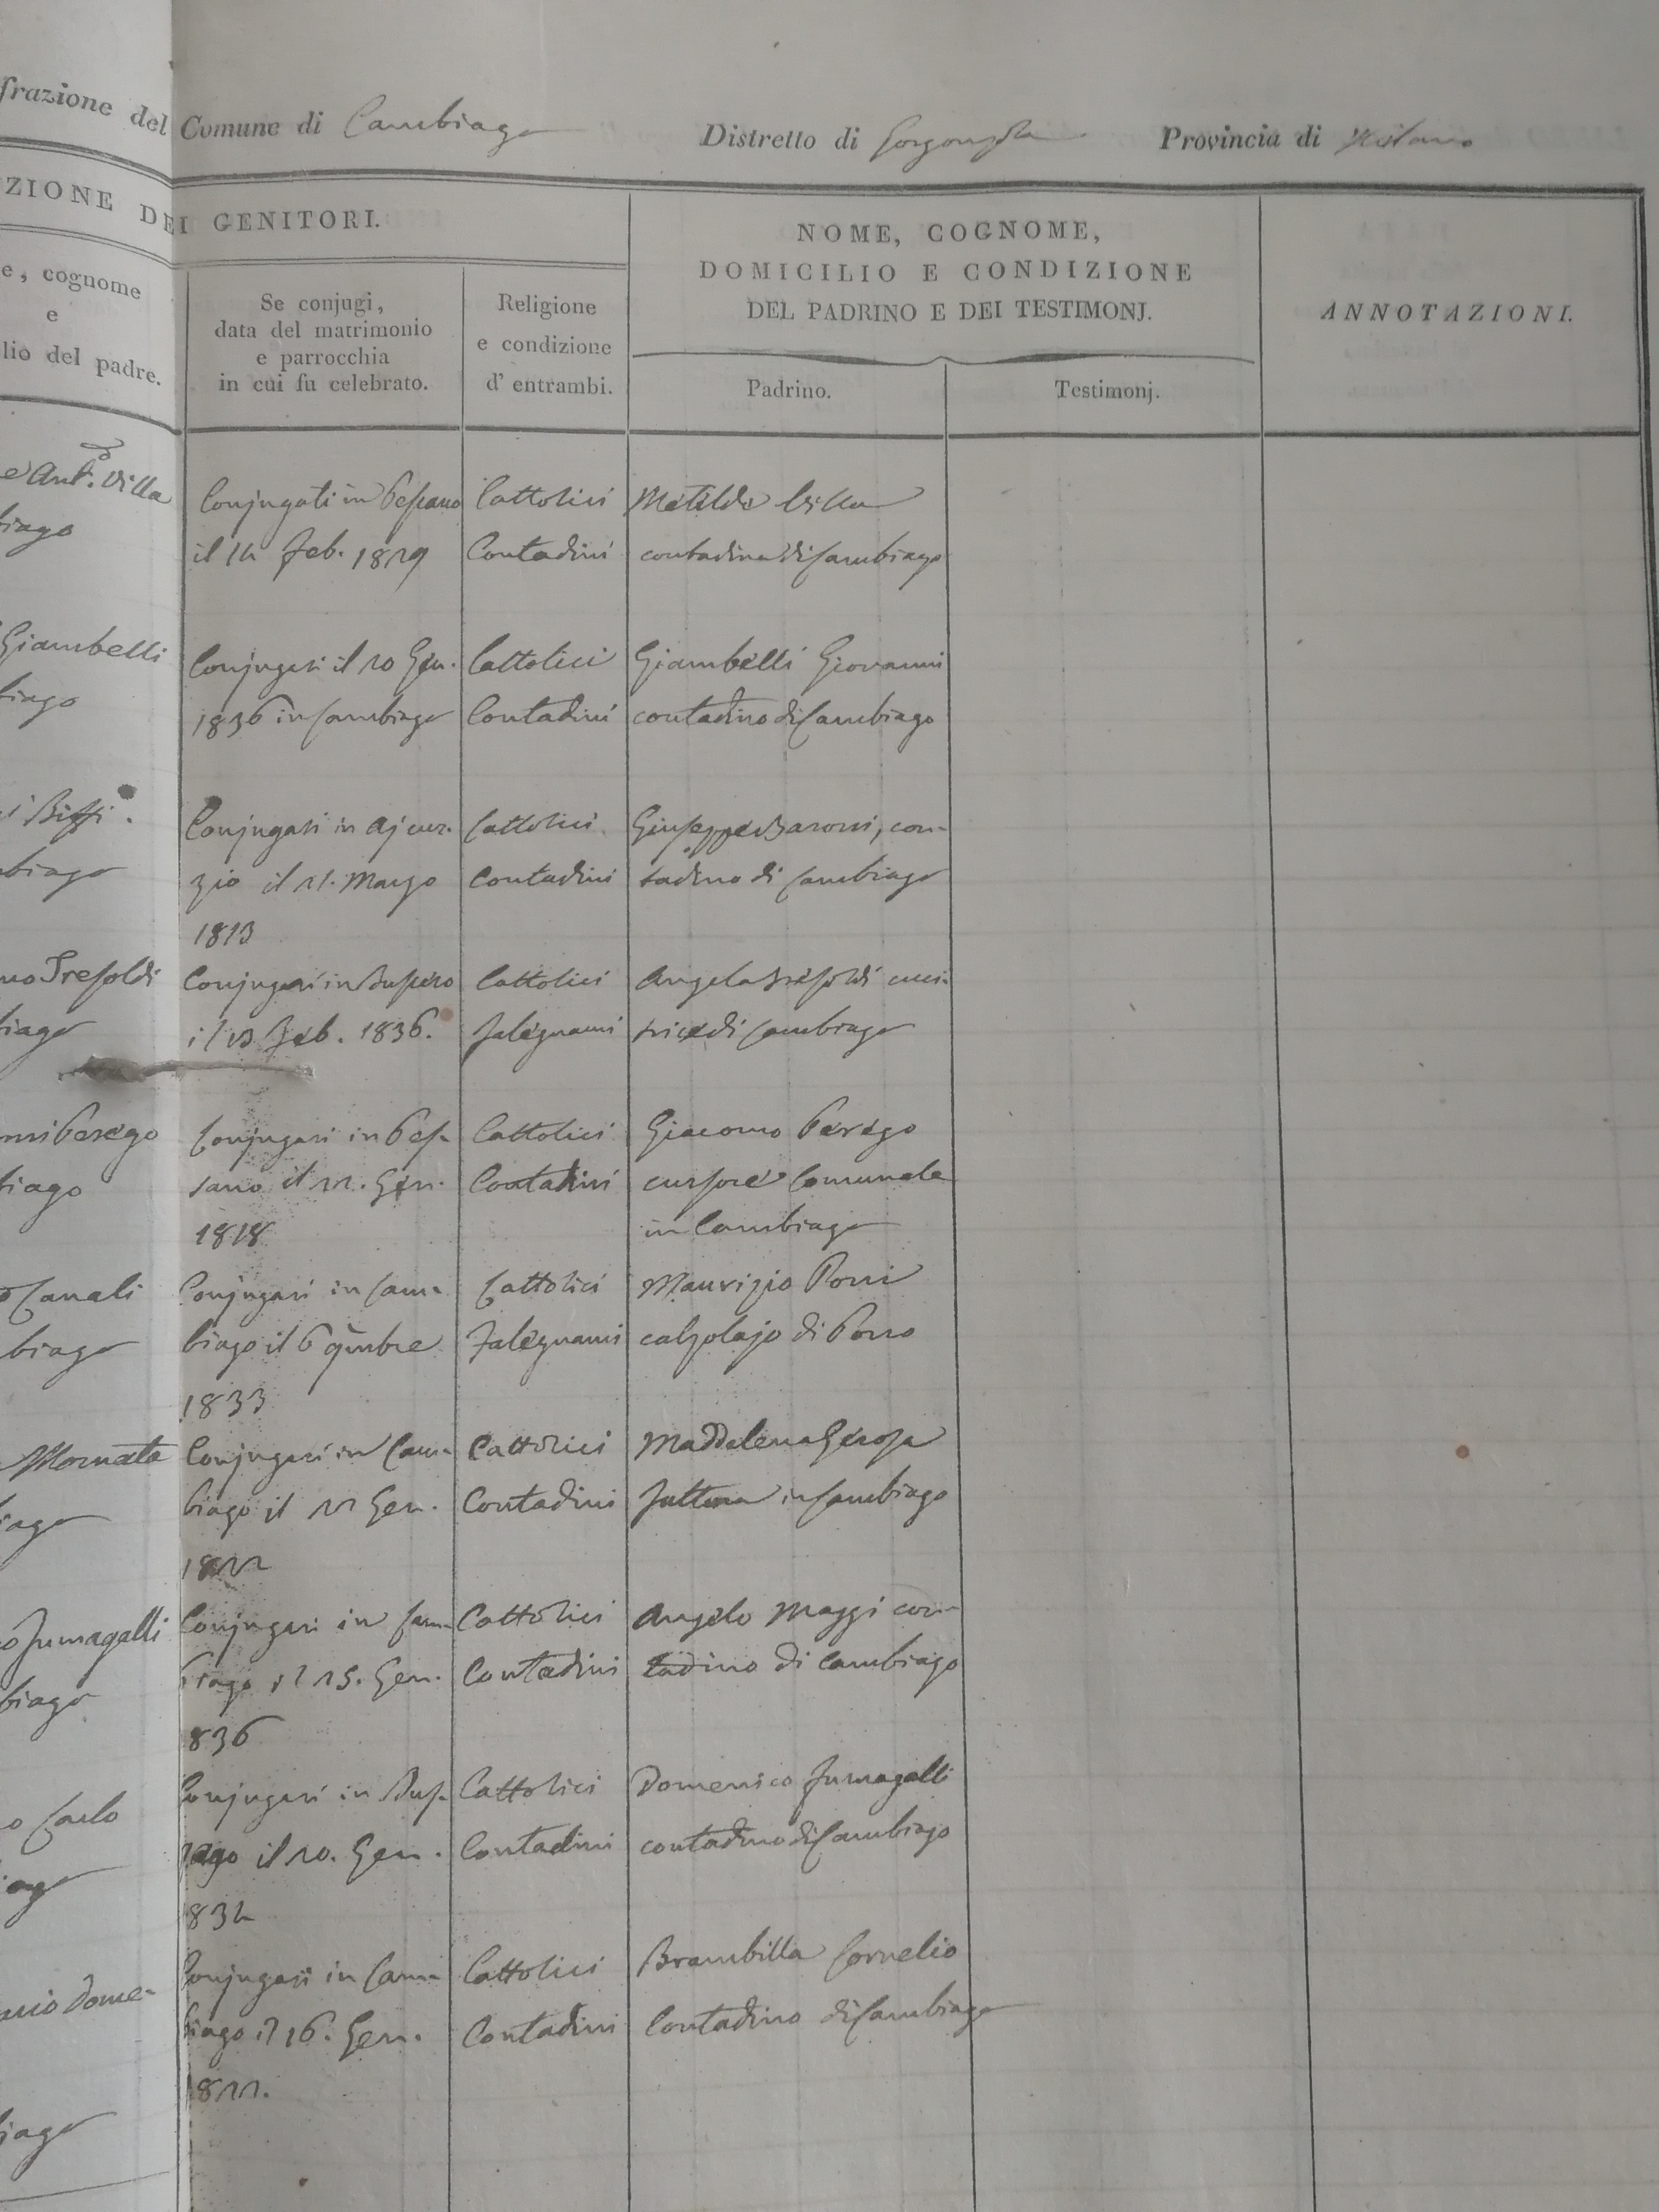 frazione del Comune di Cambiago Distretto di Gorgonzola Provincia di Milano
ZIONE DEI GENITORI.
NOME, COGNOME,
DOMICILIO E CONDIZIONE
DEL PADRINO E DEI TESTIMONJ.
ANNOTAZIONI.
e, cognome
e
lio del padre.
Se conjugi,
data del matrimonio
e parrocchia
in cui fu celebrato.
Religione
e condizione
d' entrambi.
Padrino.
Testimonj.
e Ant.º Villa Conjugati in Pessano Cattolici Matilde Villa
biago il 14 Feb. 1829 Contadini contadina di Cambiago
Giambelli Conjugati il 20 Gen. Cattolici Giambelli Giovanni
biago 1836 in Cambiago Contadini contadino di Cambiago
i Biffi. Conjugati in Ajcur- Cattolici Giuseppe Baroni, con-
biago zio il 21. Marzo Contadini tadino di Cambiago
1813
no Tresoldi Conjugati in Busnero Cattolici Angela Tresoldi cuci-
biago il 13 Feb. 1836. Falegnami trice di Cambiago
nni Perego Conjugati in Pes- Cattolici Giacomo Perego
biago sano il 22. Gen. Contadini cursore Comunale
1818 in Cambiago
o Canali Conjugati in Cam- Cattolici Maurizio Porri
biago biago il 6 9mbre Falegnami calzolajo di Porro
1833
Mornata Conjugati in Cam- Cattolici Maddalena Gerosa
iago biago il 22 Gen. Contadini in Cambiago
1822
o Fumagalli Conjugati in Cam- Cattolici Angelo Maggi con-
biago biago il 25. Gen. Contadini tadino di Cambiago
1836
o Carlo Conjugati in Bus- Cattolici Domenico Fumagalli
iago nago il 20. Gen. Contadini contadino di Cambiago
1834
nio Dome- Conjugati in Cam- Cattolici Brambilla Cornelio
biago il 16. Gen. Contadini Contadino di Cambiago
1822.
iago